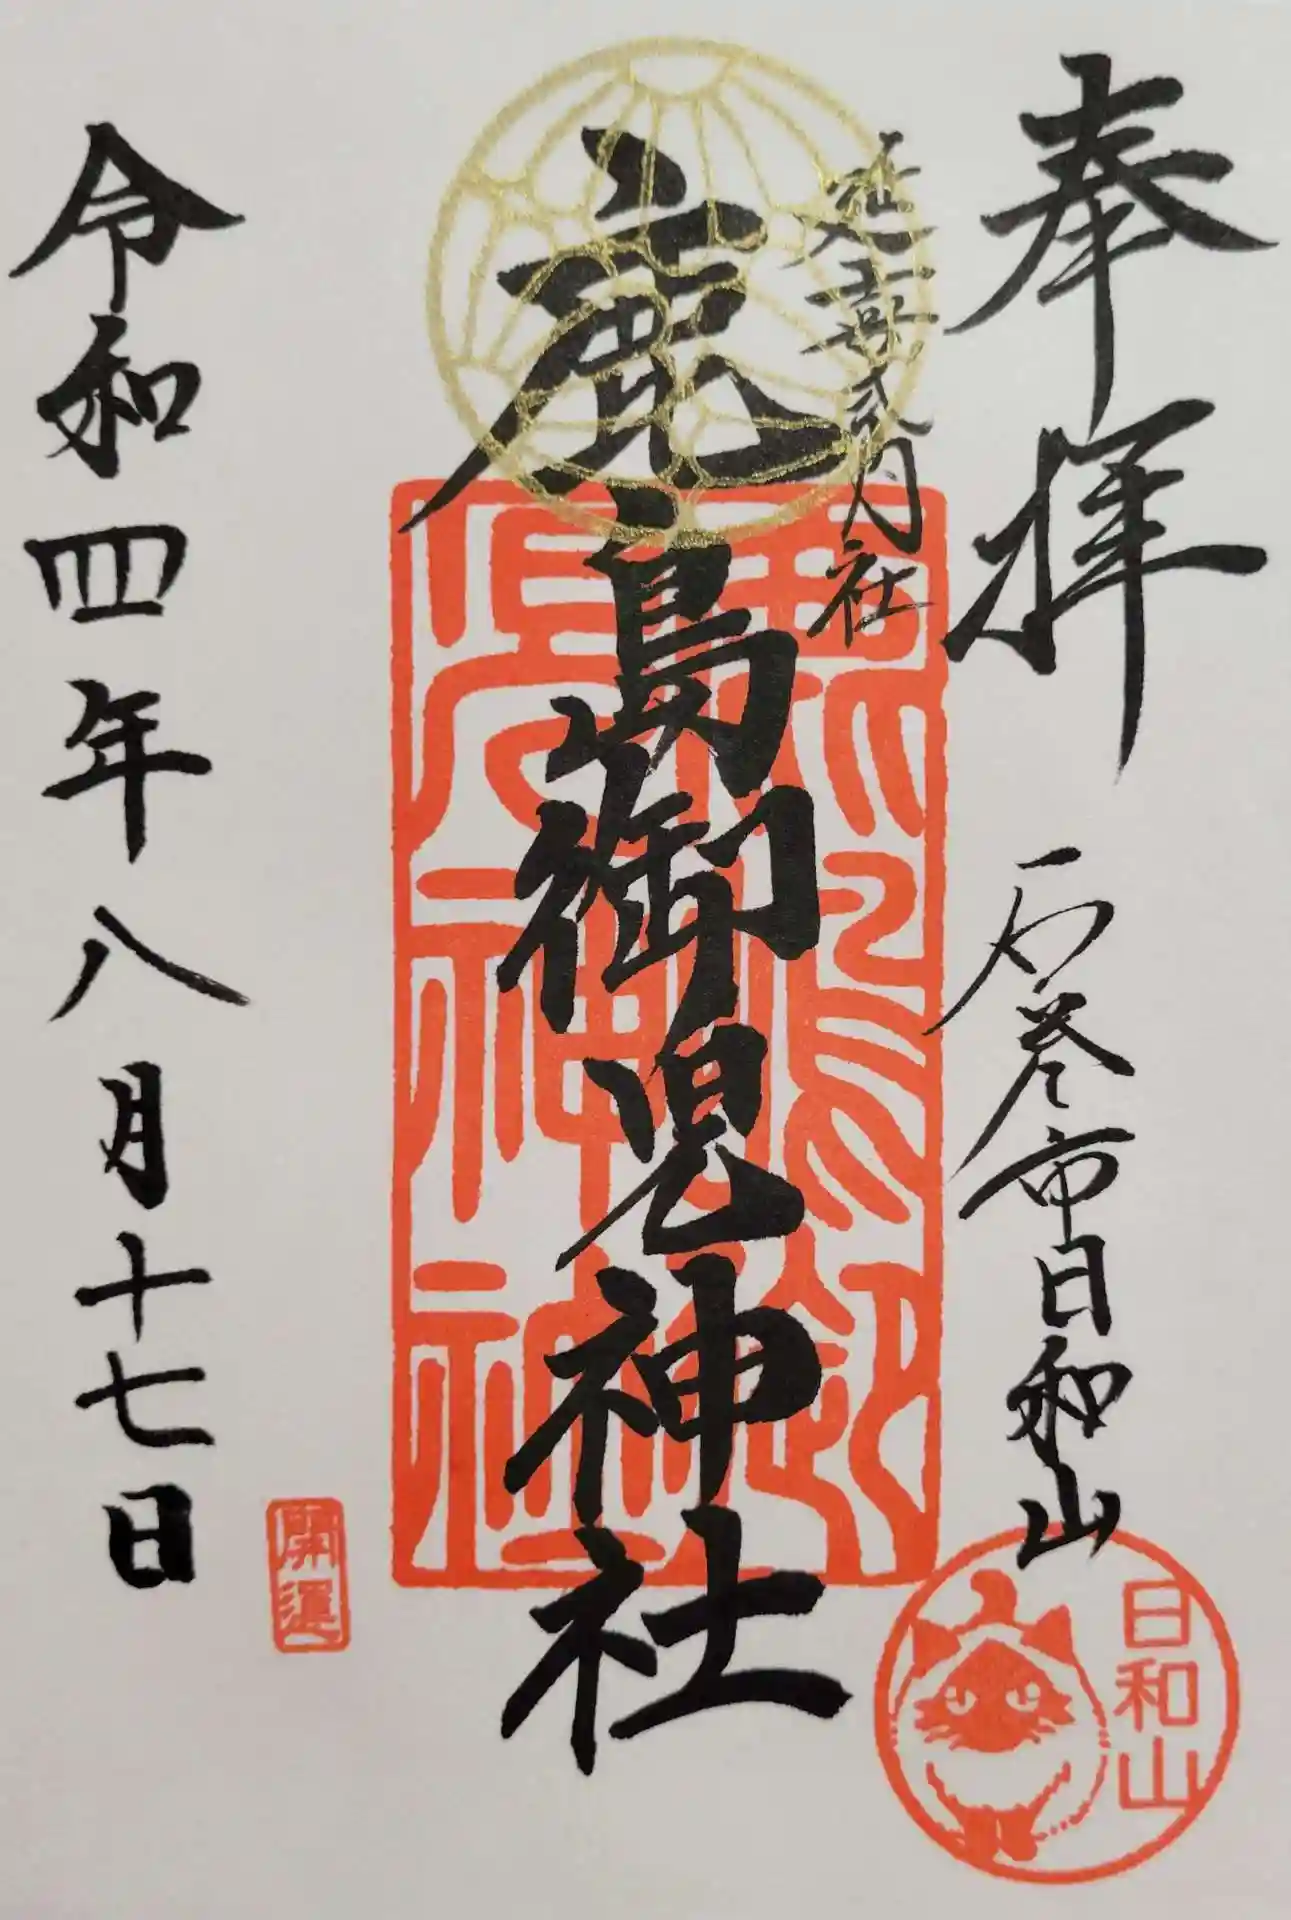 奉拝
石巻市日和山
日和山
延喜式内社
鹿島御児神社
開運
令和四年八月十七日